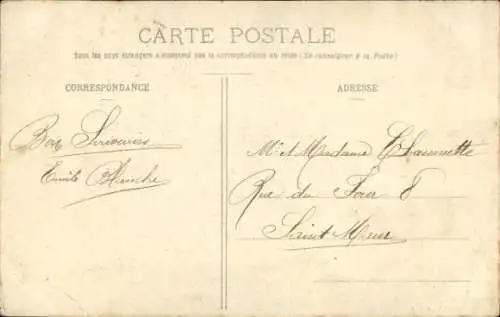 CARTE POSTALE
Tous les pays étrangers n'acceptent pas la correspondance au recto (Se renseigner à la Poste)
CORRESPONDANCE
ADRESSE
Bon Souvenirs
Emile Blanche
Mr et Madame Chaumette
Rue du Four 8
Saint Maur